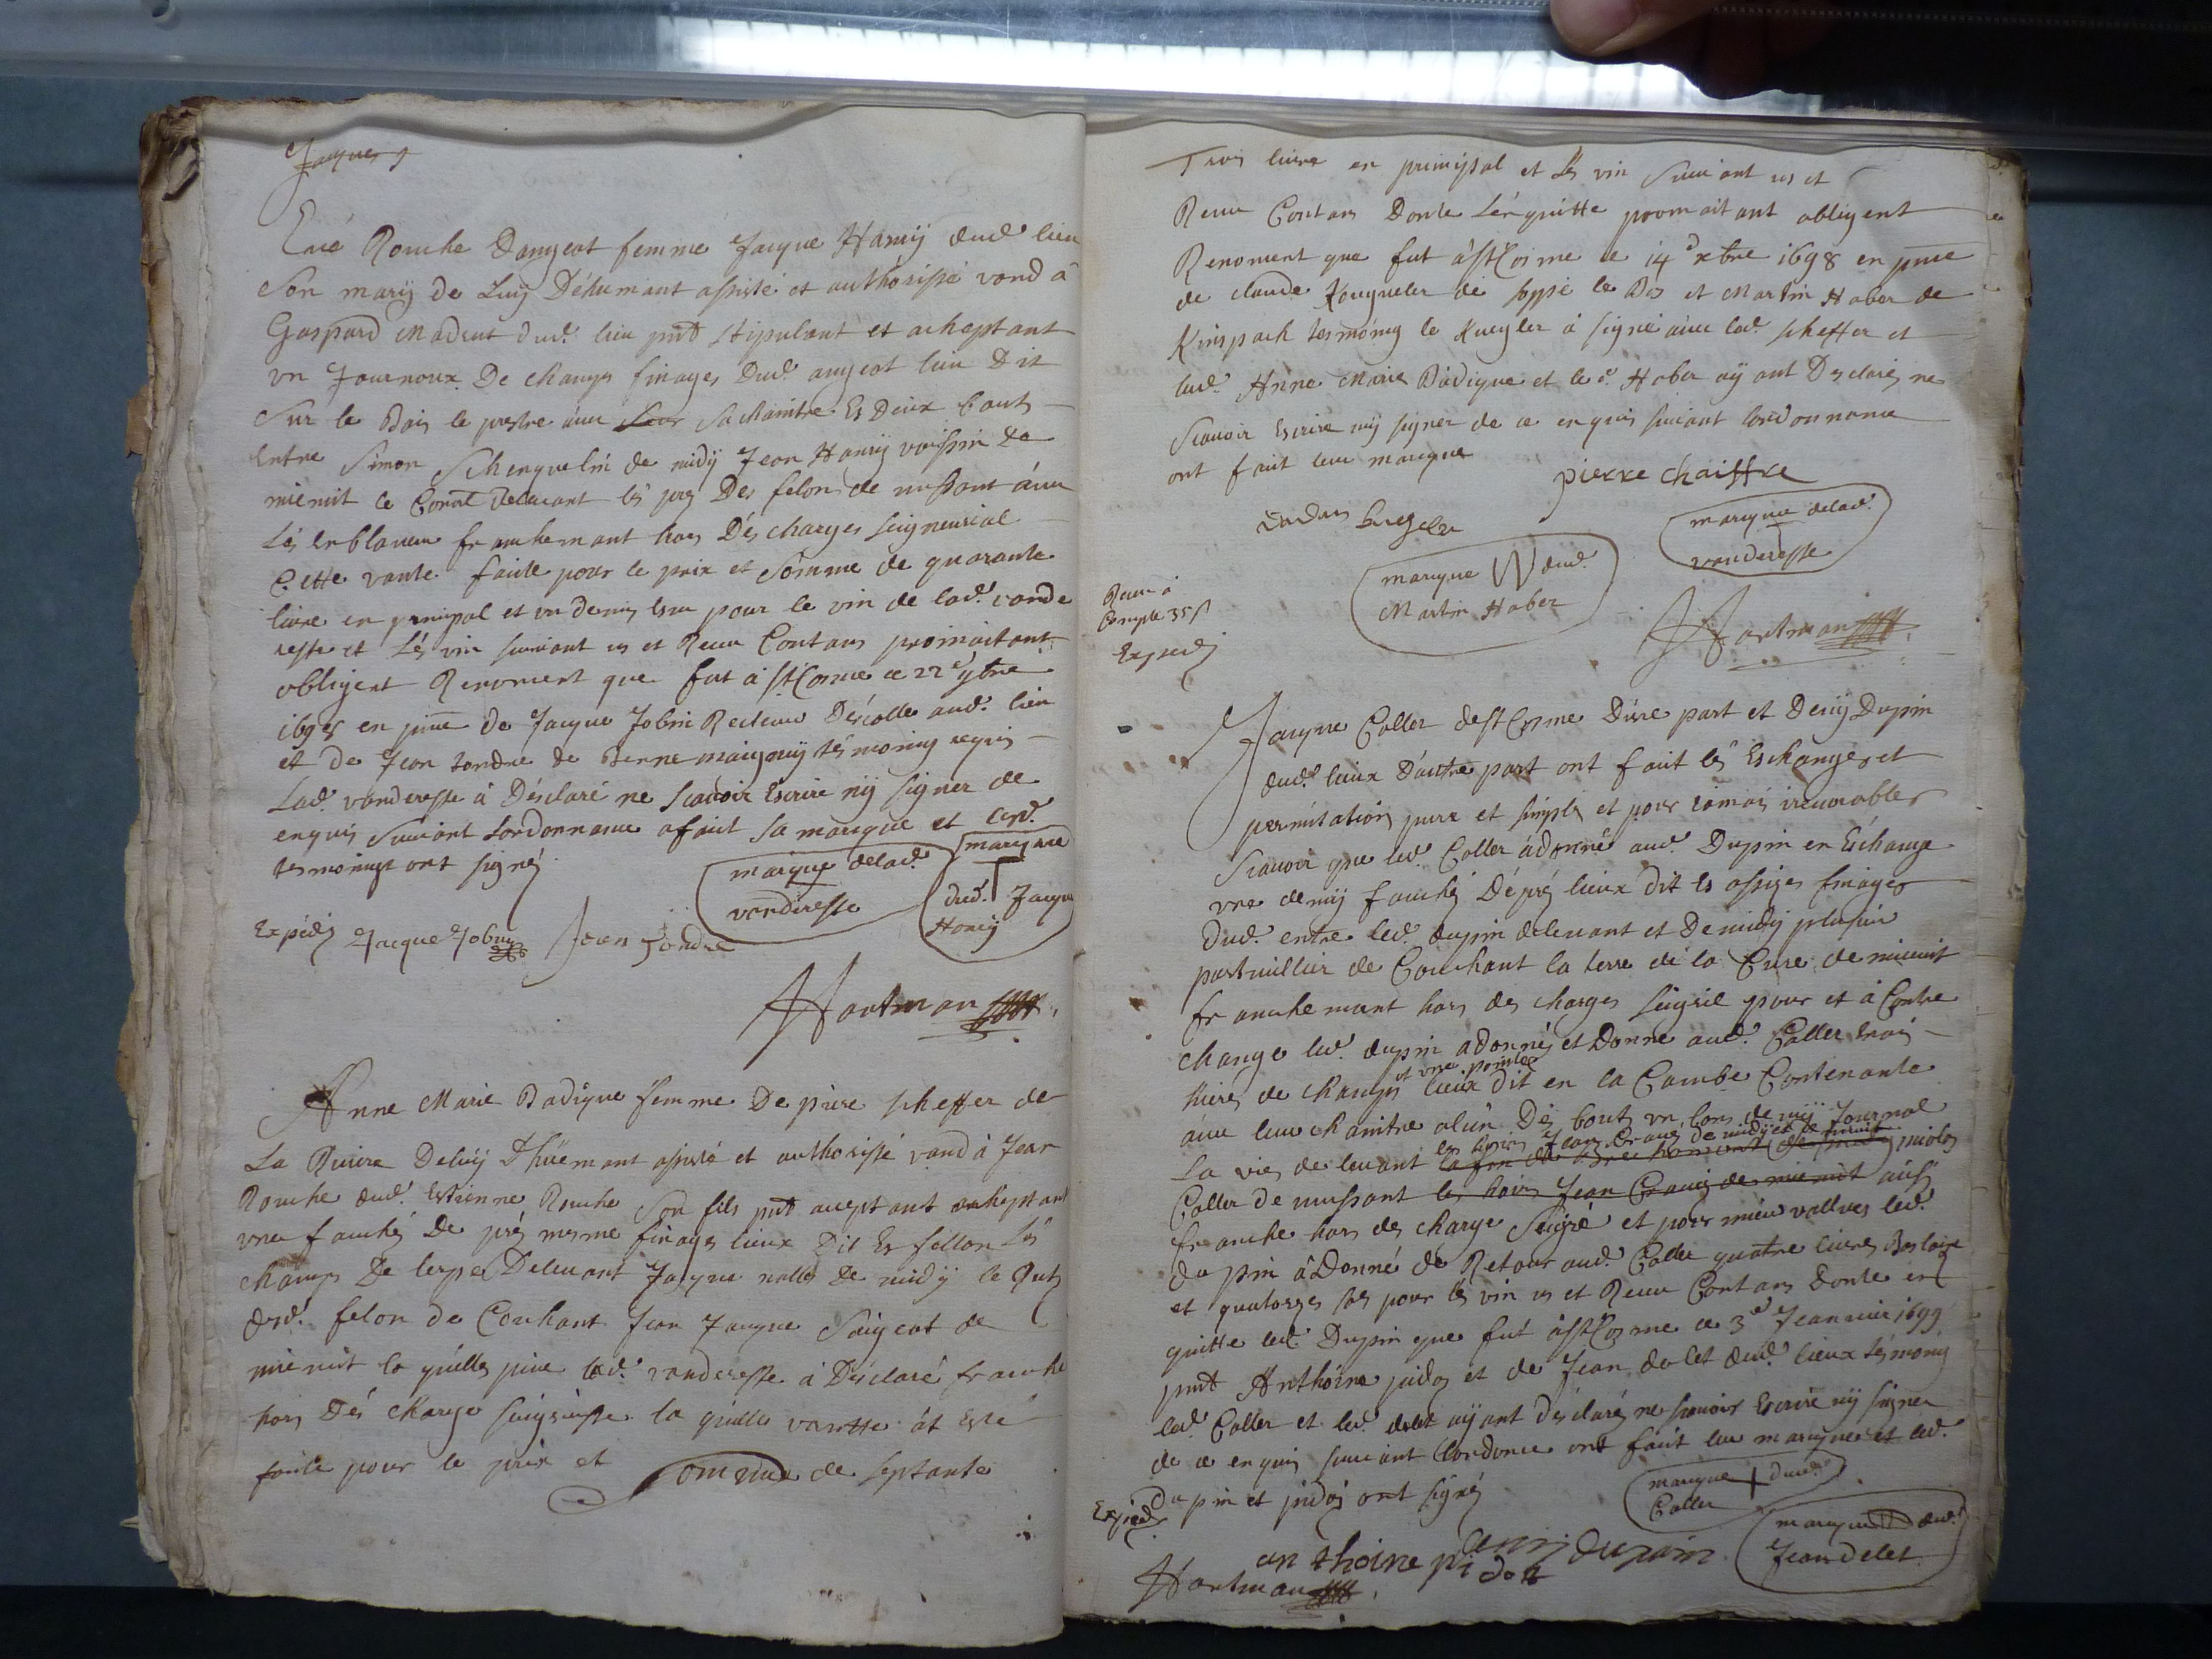 Jacques
Evé Rouche Dangeot femme Jacque Hanrÿ dud. lieu
Son marÿ de Luÿ Déhumant assisté et authorissé vand à
Gaspard Madrut dud. lieu pnt stipulant et acheptant
vn Journoux De champs finages Dud. angeot lieu Dit
Sur le Bois le prestre auec Leur Sa chaintre Es Deux bouts
Entre Simon Schenquelin de midÿ Jean Hanrÿ voissin de
mienuit le Comal Delauant les prez Des felons de mussant auec
Lés Enblaueure franchemant hors Dés charges seigneurial
Cette vante faicte pour le prix et Somme de quarante
liure en prinsipal et vn demis Escu pour le vin de lad. vande
resse et Lés vin suiuant us et Receu Contans promaitant
obligent Renoncent que fut à St Cosme ce 22e 9bre
1698 en pnce de Jacque Jobin Recteur Déscolle aud. lieu
et de Jean tondre de Berne maignÿ tésmoing requis
Lad. vanderesse à Désclaré ne Scauoir Escrire nÿ signer de
enquis Suiuant Lordonnance a fait sa marque et lesd.
tesmoings ont signé
marque delad.
vanderesse
marque
dud. Jacque
Hanrÿ
Expédié Jacque Jobin Jean Tondre
Hartman
Anne Marie Badique femme De piere scheffer de
La Riuiere Deluÿ Dhüemant assisté et authorissé vand à Jean
Rouche dud. Estienne Rouche Son fils pnt aceptant acheptant
vne fauchés De prés mesme finages lieux Dit Es fellon Lés
champs De lerpe Deleuant Jacque nalle De midÿ le Rutz
desd. felon de Couchant Jean Jacque Saigeot de
mienuit la quelle piece lad. vanderesse à Désclaré franche
hors Dés charge seigneusse la quelle vantte at Esté
faicte pour le prix et Somme de septante
Trois liure en prinsipal et Lés vin Suiuant us et
Receu Contans Donte Lérquitte promaitant obligent
Renoncent que fut à St Cosme le 14e xbre 1698 en pnce
de claude Kougueler de soppe le Bas et Martin Haber de
Kinspach tesmoing le Kuegler à signé auec led. scheffer et
lad. Anne Marie Badique et le d. Haber aÿant Desclarés ne
Scauoir Escrire nÿ signer de ce enquis suiuant lordonnance
ont fait leur marque
pierre chaiffre
marque delad.
vanderesse
marque W dud.
Martin Haber
Receu à
Compte 35 s
Expedié
Hartman
Jacque Coller de St Cosme Dúne part et Denÿ Dupin
dud. lieux Dáutre part ont fait lés Eschanges et
permütation pure et simples et pour iamais ireuocables
Scauoir que led. Coller à donné aud. Dupin en Eschange
vne demÿ fauchés Dé prés lieux dit Es assises finages
Dud. entre led. dupin deleuant et De midÿ plusieur
partuillier de Couchant la terre de la Cure de mienuit
franchemant hors des charges seigril pour et à Contre
change led. dupin a donné et Donne aud. Coller trois
tiers de champs et vne pointe lieux dit en la Combe Contenante
auec leur chaintre alün Dés bouts vn bons demÿ Journal
La vies de leuant les hoirs Jean Crauez de midÿ et de mienuit niolas
Coller de mussant les hoirs Jean Crauez de mienuit aussÿ
franche hors des charge Seigré et pour mieu vallues led.
dupin à Donné de Retour aud. Coller quatre liures Basloise
et quatorzes sos pour lés vin us et Receu Contans Donte en
quitte led. Dupin que fut à St Cosme ce 3e Jeanuier 1699
pnt Anthoine pidos et de Jean delet dud. lieux tésmoing
led. Coller et led. delet aÿant désclarés ne scauoir Escrire nÿ signer
de ce enquis suiuant lordonce ont fait leur marque et led.
Dupin et pidos ont signés
Expiedié
marque + dud.
Coller
marque dud.
Jean delet
anthoine pidot
denis dupoin
Hartman